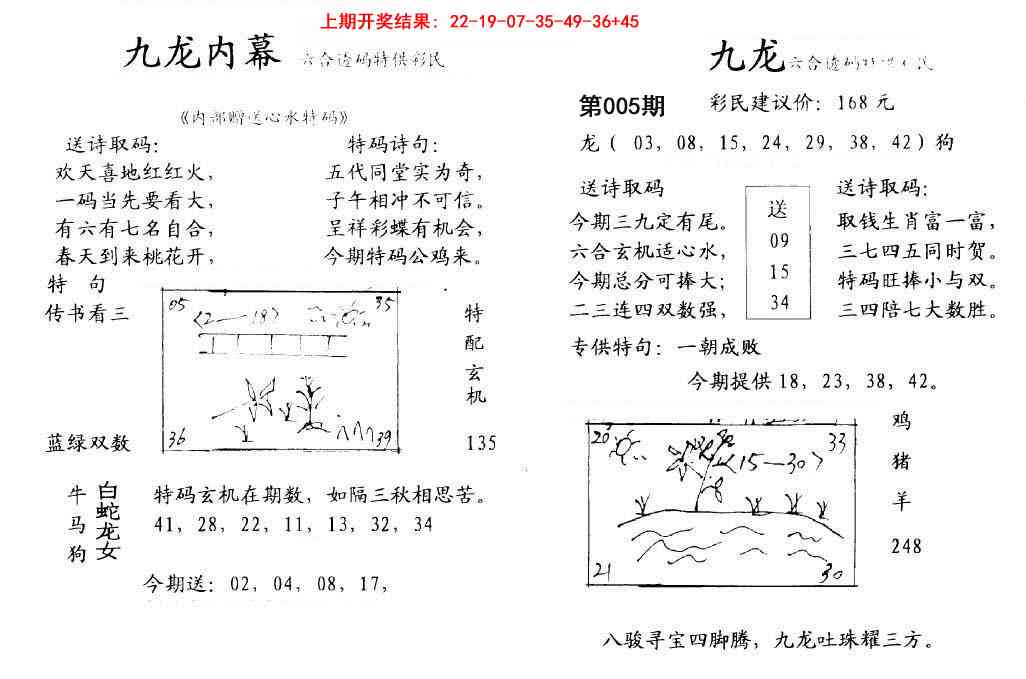 上期开奖结果：22-19-07-35-49-36+45
九龙内幕
六合透码特供彩民
《内部赠送心水特码》
送诗取码：
欢天喜地红红火，
一码当先要看大，
有六有七名自合，
春天到来桃花开，
特码诗句：
五代同堂实为奇，
子午相冲不可信。
呈祥彩蝶有机会，
今期特码公鸡来。
特 句
传书看三
蓝绿双数
05
35
〈2—18〉
36
39
特
配
玄
机
135
牛
马
狗
白
蛇
龙
女
特码玄机在期数，如隔三秋相思苦。
41，28，22，11，13，32，34
今期送：02，04，08，17，
九龙
六合透码特供
民
第005期
彩民建议价：168 元
龙（ 03，08，15，24，29，38，42）狗
送诗取码
今期三九定有尾。
六合玄机适心水，
今期总分可捧大；
二三连四双数强，
送
09
15
34
送诗取码：
取钱生肖富一富，
三七四五同时贺。
特码旺捧小与双。
三四陪七大数胜。
专供特句：一朝成败
今期提供 18，23，38，42。
20
33
〈15—30〉
21
30
鸡
猪
羊
248
八骏寻宝四脚腾，九龙吐珠耀三方。